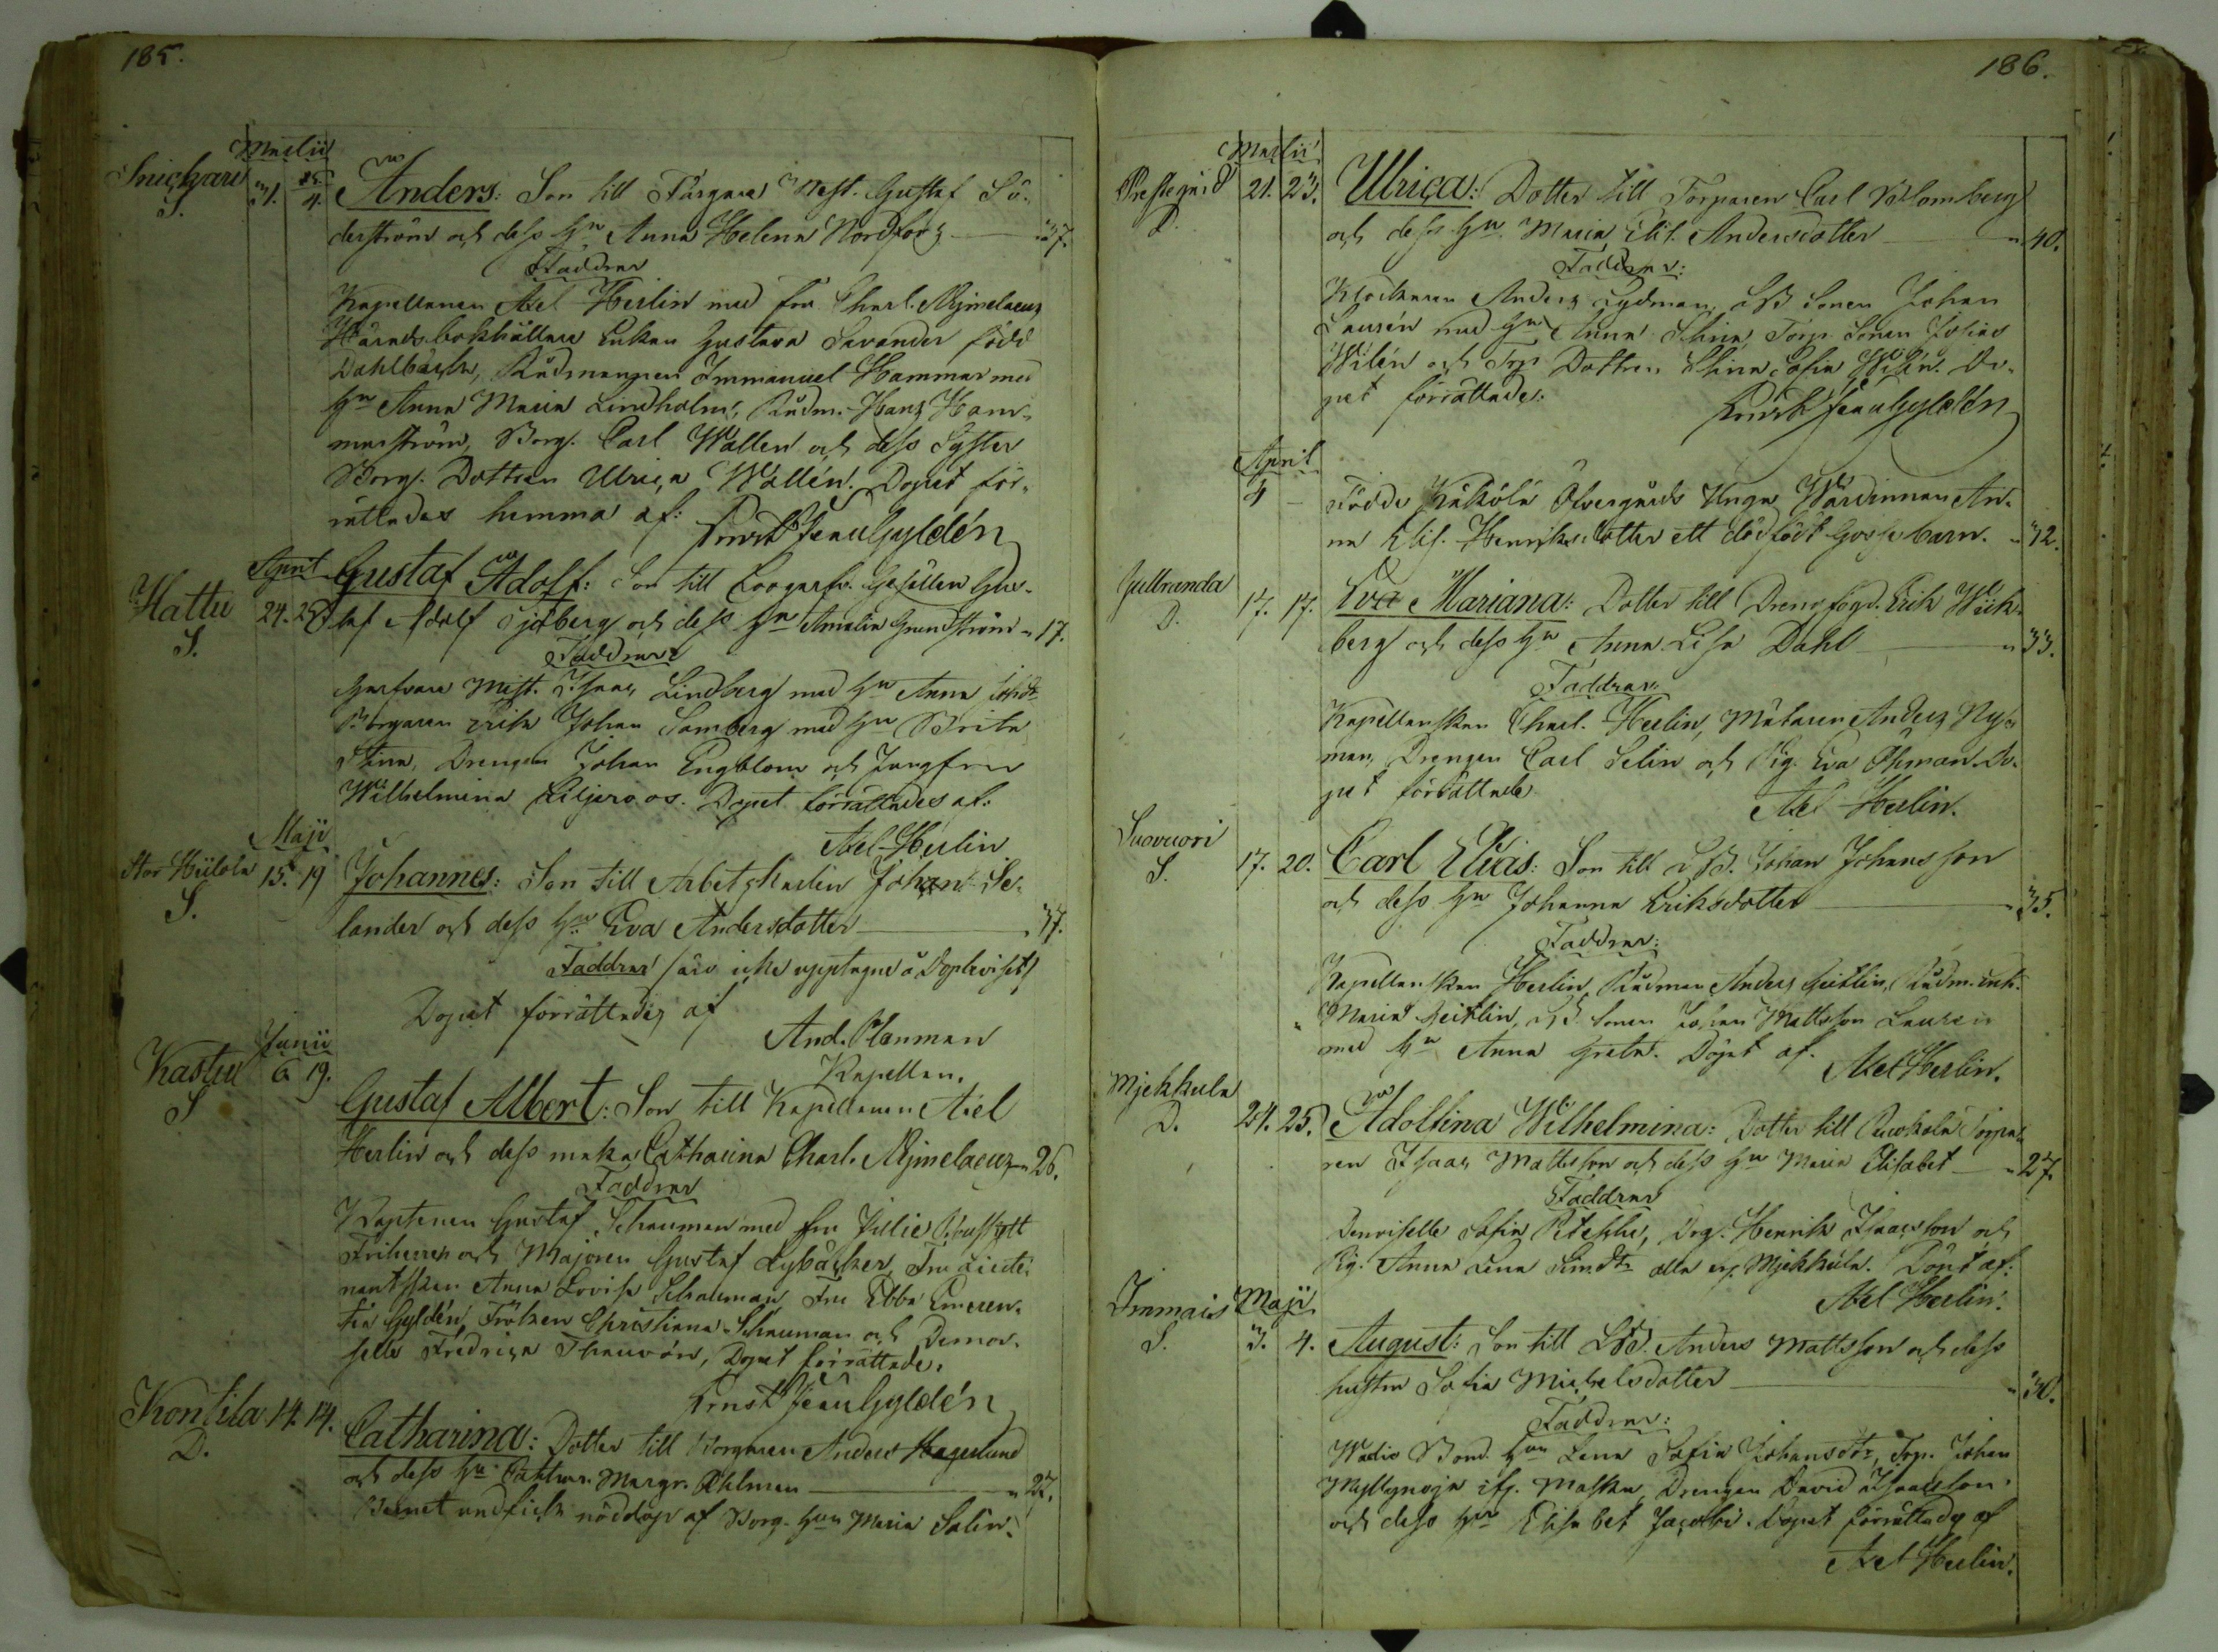 185.
Martii
31. 4. Anders: Son till Färgare Mest. Gustaf Sö-
S.
derström och dess Hu Anna Helena Nordfors " 37.
Faddrar
Kapellanen Axel Herlin med fru Charl. Mjmelaeus
Häradsbokhållare Enkan Gustava Savander född
Dahlbäck, Rådmannen Immanuel Hammar med
Hu Anna Maria Lindholm, Rådm. Hans Ham-
marström, Borg. Carl Wallen och dess Syster
Borg. Dottren Ulrica Wallén. Dopet för-
rättades hemma af: Ernst Jean Gyldén
April
Hattu 24. 25. Gustaf Adolf: Son till Gesällen Gus-
S.
taf Adolf Sjöberg och dess Hu Amalia Grundström " 17.
Faddrar
Garfvare Mest. Isaac Lindberg med Hu Anna
Borgaren Erik Johan Samberg med Hu Brita
Stina, Drengen Johan Engblom och Jungfru
Wilhelmina Liljeroos. Dopet förrättades af:
Axel Herlin
Maji
Stor Heikola 15. 19 Johannes: Son till Arbetskarlen Johan Se-
S.
lander och dess Hu Eva Andersdotter " 37.
Faddrar (äro icke upptagne å Dopbeviset)
Dopet förrättades af
And. Planman
Kapellan.
Junii
Kastu 6 19.
S
Gustaf Albert: Son till Kapellanen Axel
Herlin och dess maka Catharina Charl. Mjmelaeus " 26.
Faddrar
Kaptenen Gustaf Schauman med fru Julie
Friherren och Majoren Gustaf Lybäcker, Fru Lieute-
nantskan Anna Lovisa Schauman Fru Ebba Emeren-
tia Gyldén, Fröken Christiana Schauman och Demoi-
selle Fredrica Thauvón, Dopet förrättade.
Ernst Jean Gyldén
Kontila 14. 14.
D.
Catharina: Dotter till Borgaren Anders Hagerlund
och dess Hu Cathar. Margr. Ahlman " 27.
Barnet undfick nöddop af Borg. Hun Maria Salin.
186.
Martii
Prestegård 21. 23. Ulrica: Dotter till Torparen Carl Blomberg
D.
och dess Hu Maria Elis. Andersdotter " 40.
Faddrar:
Klockaren Anders Lydman, LB Sonen Johan
Laurén med Hu Anna Stina, Torp. Sonen Josias
Wilén och Torp Dottren Stina Sofia Wilén. Do-
pet förrättade. Ernst Jean Gyldén
April
4 – Födde Käkölä Öfvergårds Unga Wärdinnan An-
na Elis. Henriksdotter ett dödfödt Gossebarn. " 32.
Gullranda 17. 17. Eva Mariana: Dotter till Drengfogd. Erik Wik-
D.
berg och dess Hu Anna Lisa Dahl " 33.
Faddrar:
Kapellanskan Charl. Herlin, Målaren Anders Ny-
man, Drengen Carl Selin och Pig. Eva Öhman. Do-
pet förrättade
Axel Herlin.
Suovuori 17. 20. Carl Elias: Son till LB. Johan Johansson
S.
och dess Hu Johanna Eriksdotter " 35.
Faddrar:
Kapellanskan Herlin, Rådman Anders Geitlin, Rådm. enk.
Maria Geitlin, LB Sonen Johan Mattsson Lauren
med Hu Anna Greta. Döpt af. Axel Herlin.
Mjekkula 24. 25. Adolfina Wilhelmina: Dotter till Torpa-
D.
ren Isaac Mattsson och dess Hu Maria Elisabet " 27.
Faddrar
Demoiselle Sofia, Drg. Henrik Isacsson och
Pig. Anna Lena Simdtr alla ifr. Mjekkula. Döpt af:
Axel Herlin.
Maji
Immais 3. 4. August: Son till LB. Anders Mattsson och dess
S.
hustru Sofia Michelsdotter " 30.
Faddrar:
Bond. Hun Lena Sofia Johansdtr, Torp. Johan
Myllynoja ifr. Masku, Drengen David Isaacsson
och dess Hu Elisabet Jacobs. Dopet förrättades af
Axel Herlin.